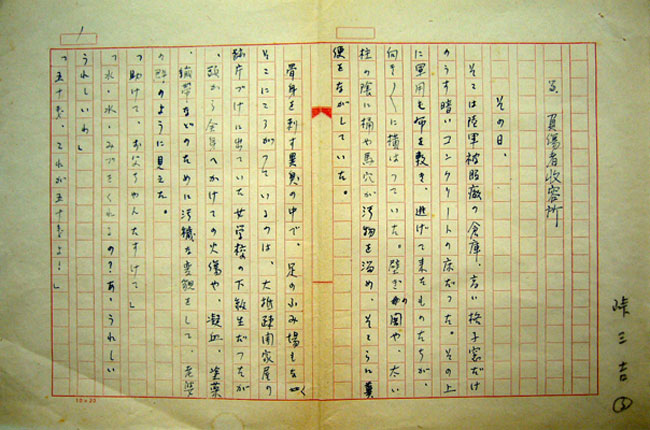 峠三吉
負傷者收容所
その日、
そこは陸軍被服廠の倉庫、高い格子窓だけ
のうす暗いコンクリートの床だった。その上
に軍用毛布を敷き、逃げて来たものたちが、
向き〱に横はっていた。壁ぎや、太い
柱の陰に桶や馬穴が汚物を溜め、そこらに糞
便をながしていた。
骨身を刺す異臭の中で、足のふみ場もなく
そこにころがっているのは、大抵疎開家屋の
跡片づけに出ていた女学校の下級生だったが
、顔から全身へかけての火傷や、凝血、塗薬
、繃帯などのために汚穢な変貌をして、老婆
の群のように見えた。
「助けて、お父ちゃんたすけて」
「水・水・みずをくれるの？あ、うれしい
うれしいわ」
「五十銭、これが五十銭よ！」
1
10×20